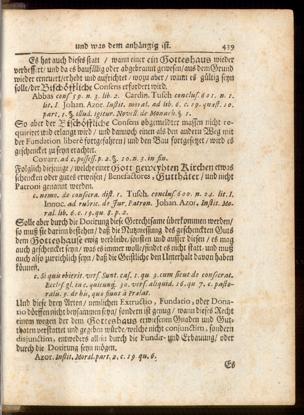 und was dem anhängig ist. 439
Es hat auch dieses statt / wann einer ein Gotteshaus wieder
verbessert / und da es baufällig oder abgebrannt gewesen / aus dem Grund
wieder erneuert / erhebt und aufrichtet / wozu aber / wann es gültig seyn
solle / der Bischöffliche Consens erfordert wird.
Abbas conf. 59. n. 3. lib. 2. Cardin. Tusch concluf. 601. n. 1.
lit. I. Johan. Azor. Instit. moral. ad lib. 6. c. 19. quæst. 10.
part. 1. §. illud. igitur. Novell. de Monach. §. 1.
So aber der Bischöffliche Consens obgemeldter massen nicht re-
quiriret und erlangt wird / und dannoch einen als den andern Weg mit
der Fundation libere fortgefahren / und den Bau fortgesetzet / wird es
geschenckt zu seyn erachtet.
Covarr. ad c. possess. p. 2. §. 10. n. 3. in fin.
Folglich diejenige / welche einer Gott geweyhten Kirchen etwas
schencken oder gutes erweisen / Benefactores, Gutthäter / und nicht
Patroni genannt werden.
c. nemo. de consecra. dist. 1. Tusch. concluf. 600. n. 24. lit. I.
Innoc. ad rubric. de Jur. Patron. Johan. Azor. Instit. Mo-
ral. lib. 6. c. 19. qu. 8. p. 2.
Solle aber durch die Dotirung diese Gerechtsame überkommen werden /
so muß sie darinn bestehen / daß die Nutzniessung des geschenckten Guts
dem Gotteshause ewig verbleibe, sonsten und ausser diesen / es mag
auch geschenckt seyn / was es immer wolle / findet es nicht statt. und muß
auch also zureichlich seyn / daß die Geistliche den Unterhalt davon haben
können.
c. Si quis objecit. vers. Sunt. cas. 1. qu. 3. cum sicut de consecrat.
Eccles. gl. in c. quicunq. 30. vers. aliquid. 16. qu 7. c. pasto-
ralis. 7. de his, quæ fiunt à Prælat.
Und diese drey Arten / nemlichen Exructio, Fundatio, oder Dona-
tio dörffen nicht beysammen seyn / sondern ist genug / wann dieses Recht
einem wegen der dem Gotteshaus erwiesenen Gnaden und Gut-
thaten verstattet und gegeben würde / welche nicht conjunctim, sondern
disjunctim, entweders allein durch die Fundir- und Erbauung / oder
durch die Dotirung seyn mögen.
Azor. Instit. Moral. part. 2. c. 19. qu. 6.
Es